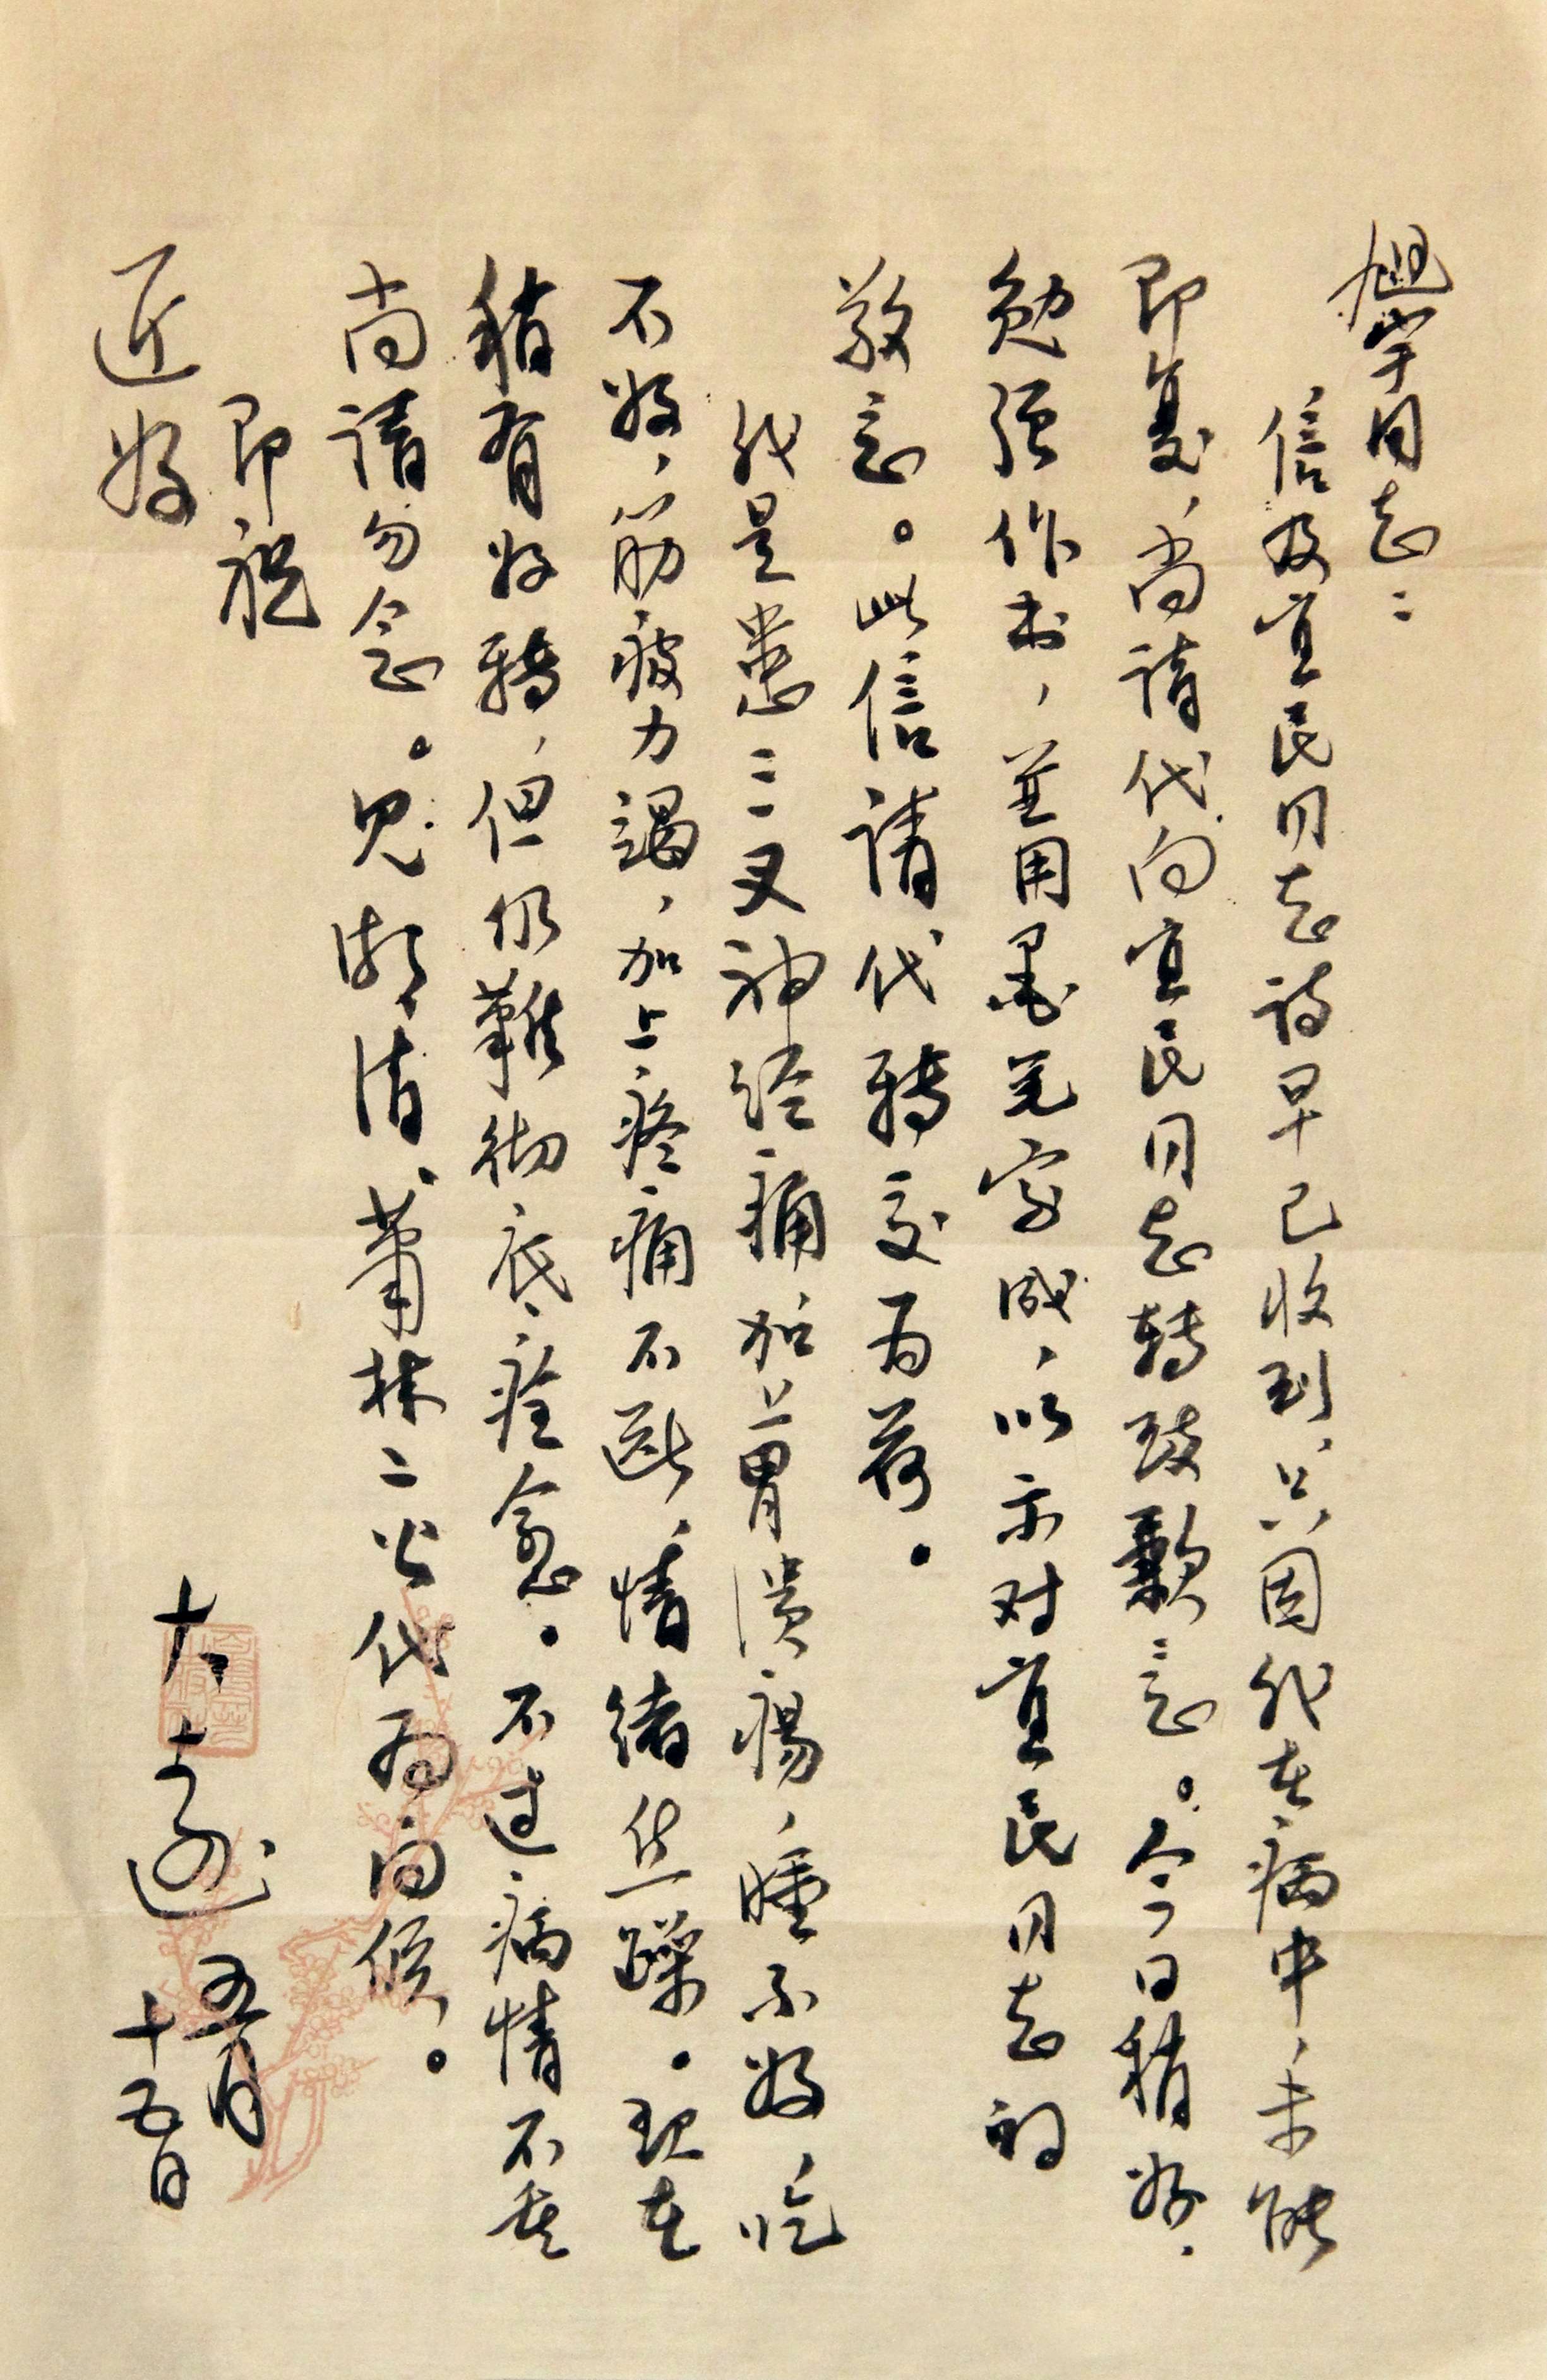 旭宇同志：
信及宜民同志诗早已收到，只因我在病中，未能
即复，尚请代向宜民同志转致歉意。今日稍好，
勉强作书，并用墨笔写成，以示对宜民同志的
敬意。此信请代转交为荷。
我是患三叉神经痛加上胃溃疡，睡不好，吃
不好，筋疲力竭，加上疼痛不断，情绪焦躁。现在
稍有好转，但仍难彻底痊愈。不过病情不重
尚请勿念。见浪清、萧林二公代为问候。
即祝
近好
大遂
五月
十五日